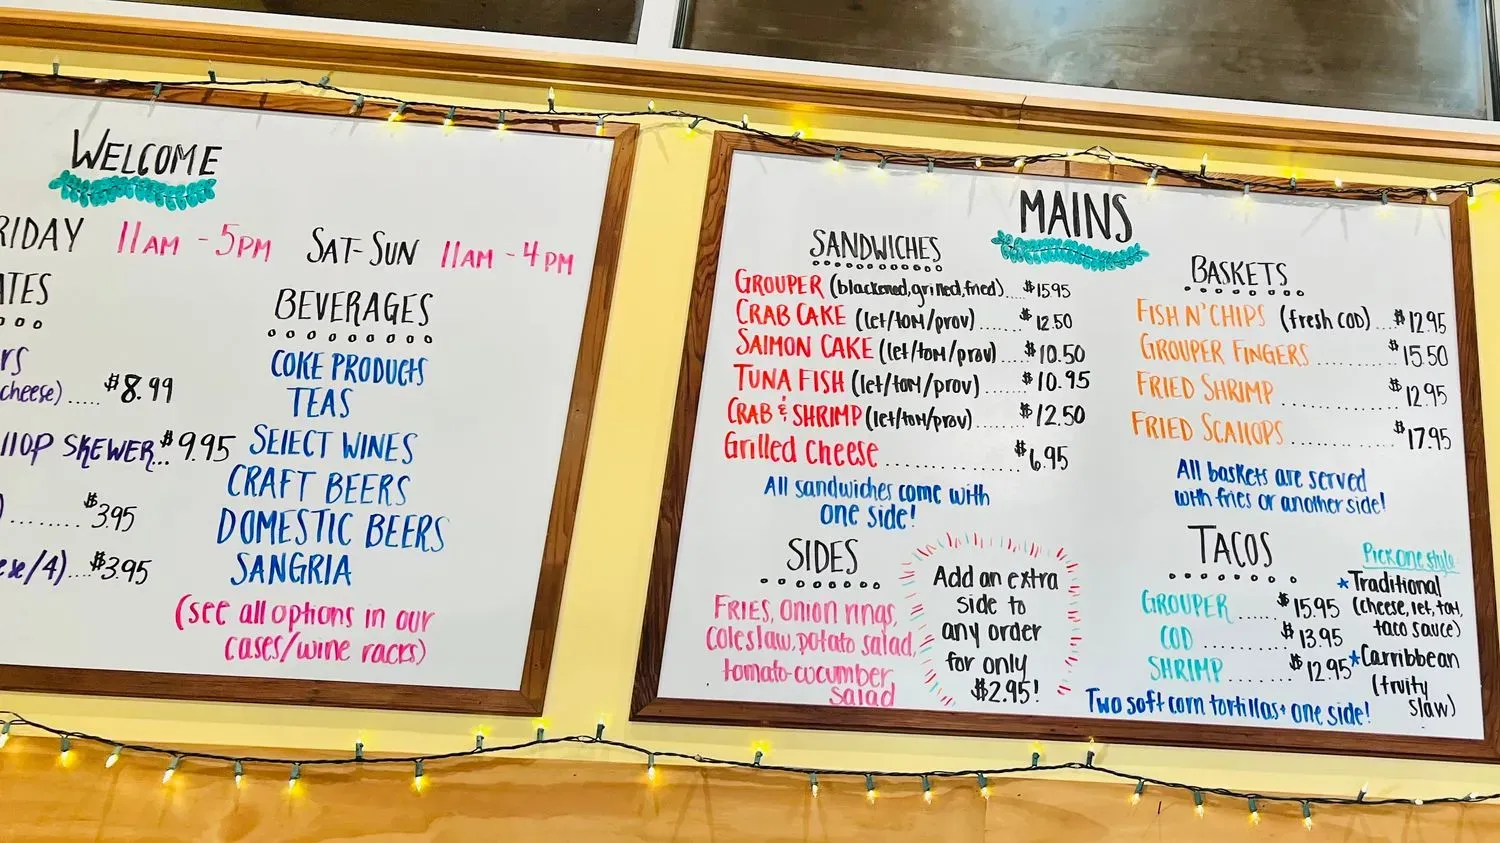 WELCOME
RIDAY 11AM - 5PM SAT-SUN 11AM - 4PM
ATES
RS
cheese)..... $8.99
LLOP SKEWER... $9.95
)......... $3.95
ese/4)....$3.95
BEVERAGES
COKE PRODUCTS
TEAS
SELECT WINES
CRAFT BEERS
DOMESTIC BEERS
SANGRIA
(see all options in our
cases/wine racks)
MAINS
SANDWICHES
GROUPER (blackened, grilled, fried)....$15.95
CRAB CAKE (let/tom/prov)....... $12.50
SALMON CAKE (let/tom/prov)....$10.50
TUNA FISH (let/tom/prov)...... $10.95
CRAB & SHRIMP (let/tom/prov)...... $12.50
Grilled Cheese .............. $6.95
All sandwiches come with
one side!
SIDES
FRIES, onion rings,
coleslaw, potato salad,
tomato-cucumber
salad
Add an extra
side to
any order
for only
$2.95!
BASKETS
FISH N' CHIPS (fresh COD)...$12.95
GROUPER FINGERS ......... $15.50
FRIED SHRIMP ............ $12.95
FRIED SCALLOPS ............ $17.95
All baskets are served
with fries or another side!
TACOS
GROUPER ..... $15.95
COD .......... $13.95
SHRIMP ......... $12.95
Pick one style
*Traditional
(cheese, let, tom,
taco sauce)
*Carribbean
(fruity
slaw)
Two soft corn tortillas + one side!